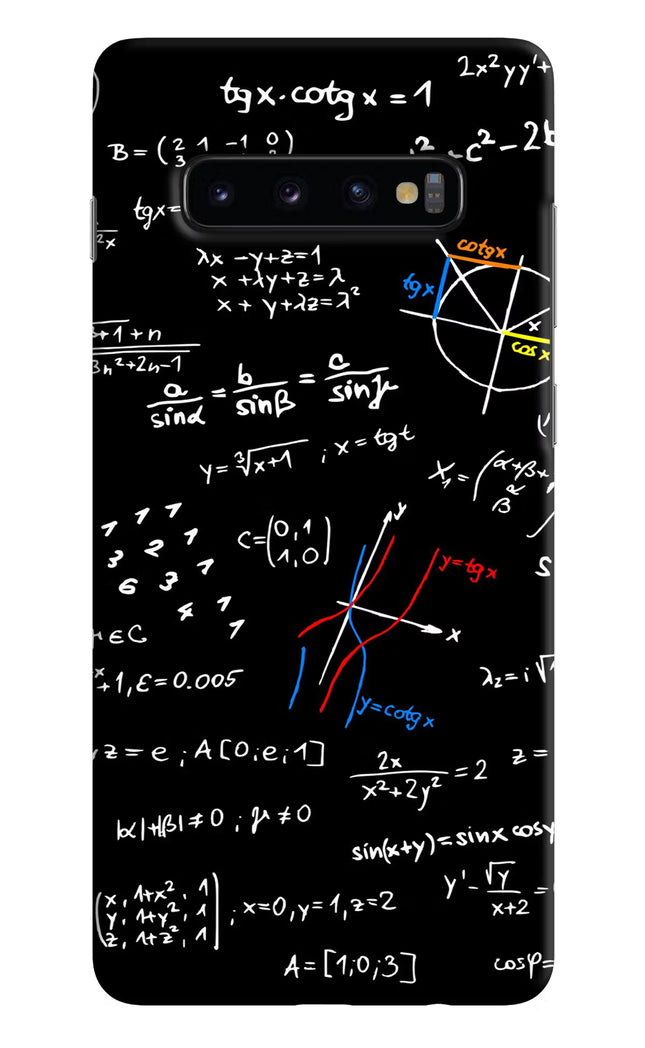 2x²yy'+
tgx.cotgx=1
B=(2 1 -1 0
3
c²-2
tgx=
2x
λx-y+z=1
x+λy+z=λ
x+y+λz=λ²
cotgx
tgx
x
cosx
+1+n
3n²+2n-1
a/sinα = b/sinβ = c/sinμ
y=∛x+1 ; x=tgt
X₁=(α+β+
β
1 1 1
3 2 1
6 3 1
4 1
1
C=(0,1
1,0)
y
y=tgx
x
y=cotgx
∈C
+1,ε=0.005
λ₂=i√
z=e;A[0;e;1]
2x/x²+2y²=2
z=
|α|+|β|≠0;μ≠0
sin(x+y)=sinx cosy
y'-√y/x+2=
x, 1+x², 1
y, 1+y², 1
z, 1+z², 1
;x=0,y=1,z=2
A=[1;0;3]
cosφ=